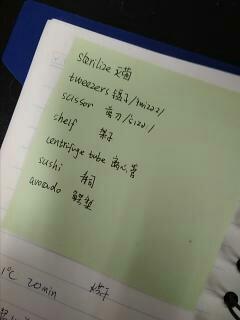 sterilize 灭菌
tweezers 镊子/twizəz/
scissor 剪刀/sizə/
shelf 架子
centrifuge tube 离心管
sushi 寿司
avocado
1°C 20min